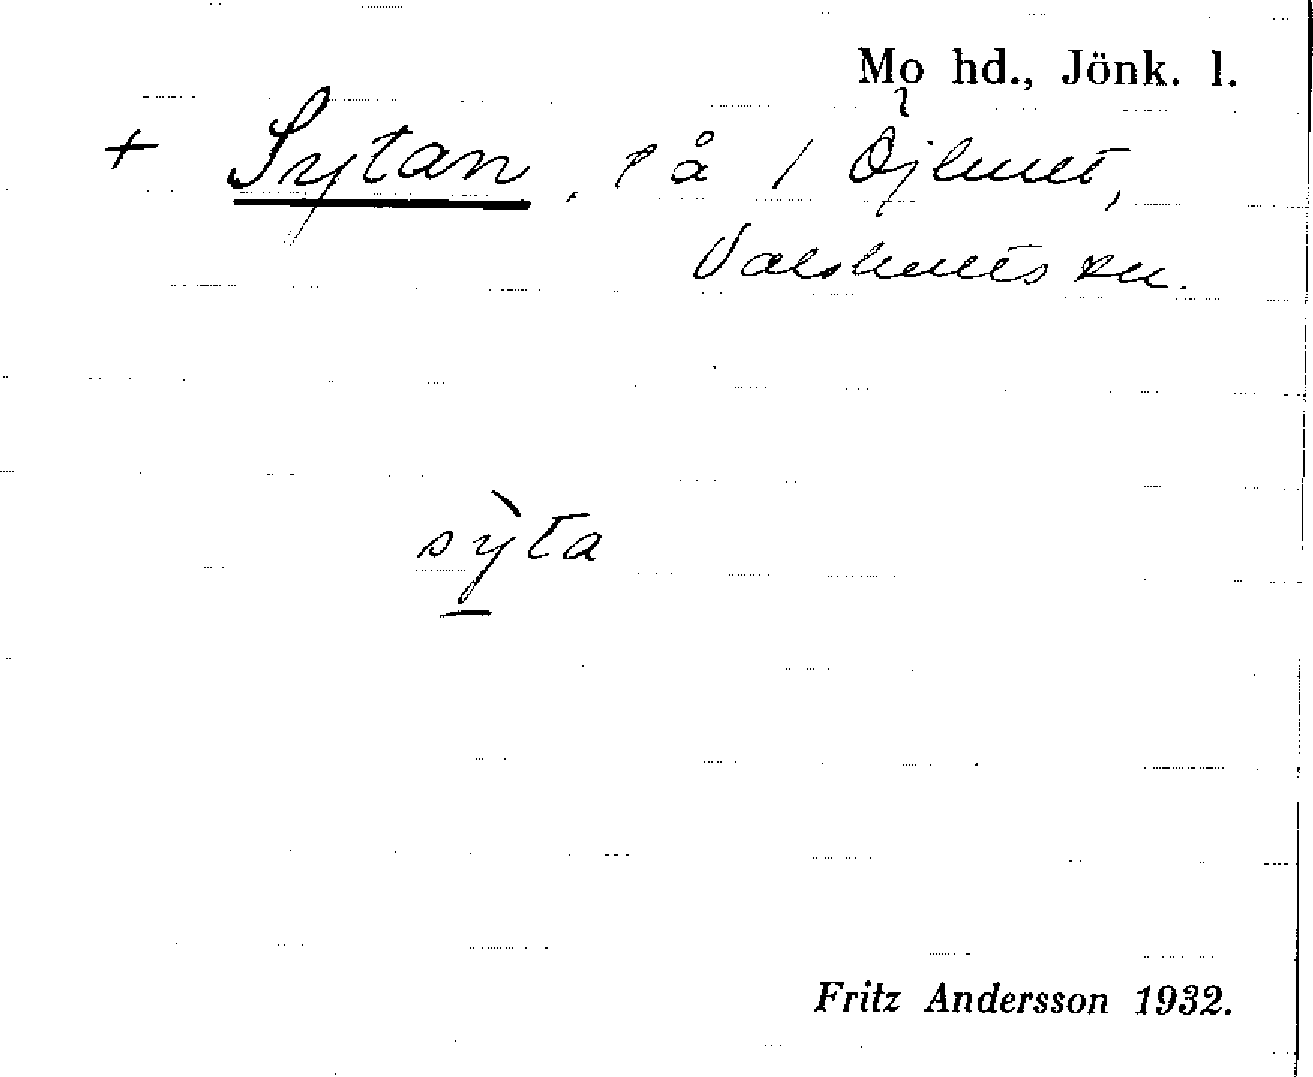 Mo hd., Jönk. l.
+ Sytan, på 1 Öjhult,
Valshults sn.
sỳta
Fritz Andersson 1932.